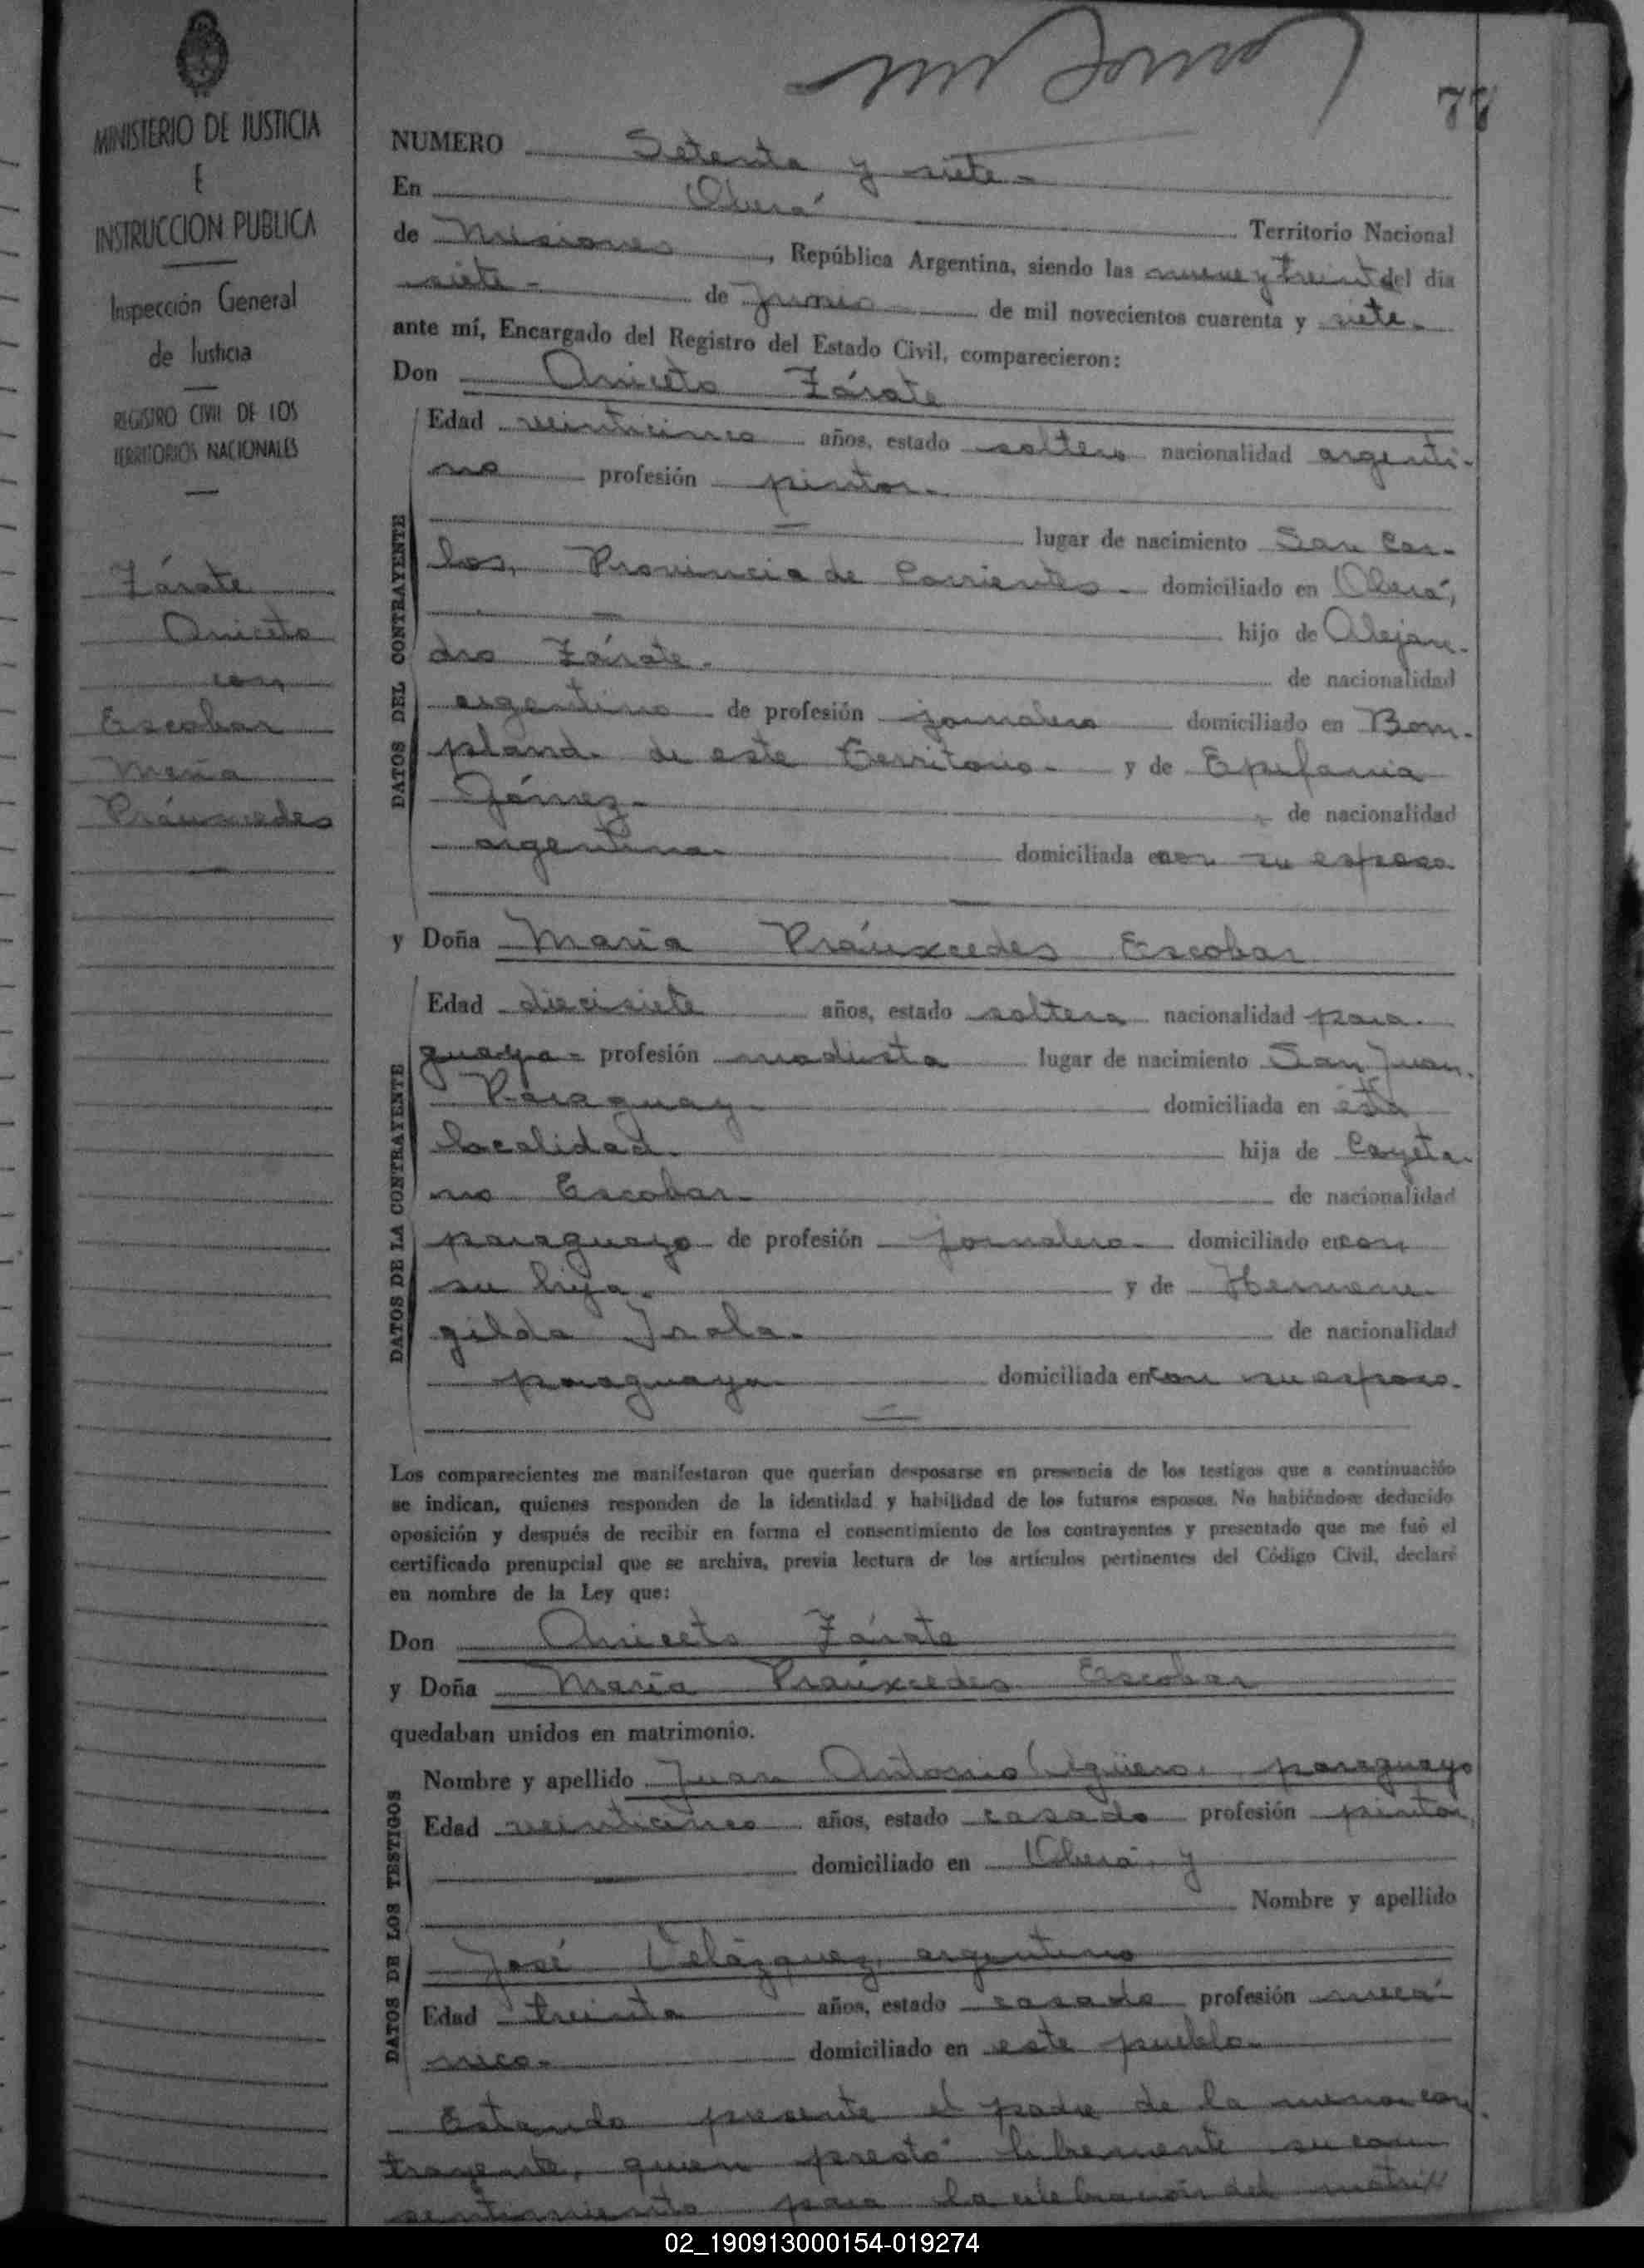 77
MINISTERIO DE JUSTICIA
E
INSTRUCCION PUBLICA
Inspección General
de Justicia
REGISTRO CIVIL DE LOS
TERRITORIOS NACIONALES
Zárate
Aniceto
con
Escobar
María
Práuxcedes
NUMERO Setenta y siete-
En Oberá Territorio Nacional
de Misiones, República Argentina, siendo las nueve y treint del día
siete- de Junio de mil novecientos cuarenta y siete.
ante mí, Encargado del Registro del Estado Civil, comparecieron:
Don Aniceto Zárate
DATOS DEL CONTRAYENTE
Edad veinticinco años, estado soltero nacionalidad argenti-
no profesión pintor.
lugar de nacimiento San Car-
los, Provincia de Corrientes- domiciliado en Oberá,
hijo de Alejan-
dro Zárate. de nacionalidad
argentino de profesión jornalero domiciliado en Bom-
pland. de este Territorio- y de Epifania
Gómez- de nacionalidad
argentina. domiciliada con su esposo.
y Doña María Práuxcedes Escobar
DATOS DE LA CONTRAYENTE
Edad diecisiete años, estado soltera nacionalidad para-
guaya- profesión modista lugar de nacimiento San Juan.
Paraguay- domiciliada en esta
localidad. hija de Cayeta-
no Escobar- de nacionalidad
paraguayo de profesión jornalero- domiciliado en con
su hija. y de Hermene-
gilda Irala. de nacionalidad
paraguaya domiciliada en con su esposo.
Los comparecientes me manifestaron que querían desposarse en presencia de los testigos que a continuación
se indican, quienes responden de la identidad y habilidad de los futuros esposos. No habiéndose deducido
oposición y después de recibir en forma el consentimiento de los contrayentes y presentado que me fué el
certificado prenupcial que se archiva, previa lectura de los artículos pertinentes del Código Civil, declaré
en nombre de la Ley que:
Don Aniceto Zárate
y Doña María Práuxcedes Escobar
quedaban unidos en matrimonio.
DATOS DE LOS TESTIGOS
Nombre y apellido Juan Antonio paraguayo
Edad veinticinco años, estado casado profesión pintor,
domiciliado en Oberá, y
Nombre y apellido
José Velázquez, argentino
Edad treinta años, estado casado profesión mecá-
nico- domiciliado en este pueblo.
Estando presente el padre de la menor con-
trayente, quien prestó libremente su con-
sentimiento para la celebración del matri
02_190913000154-019274